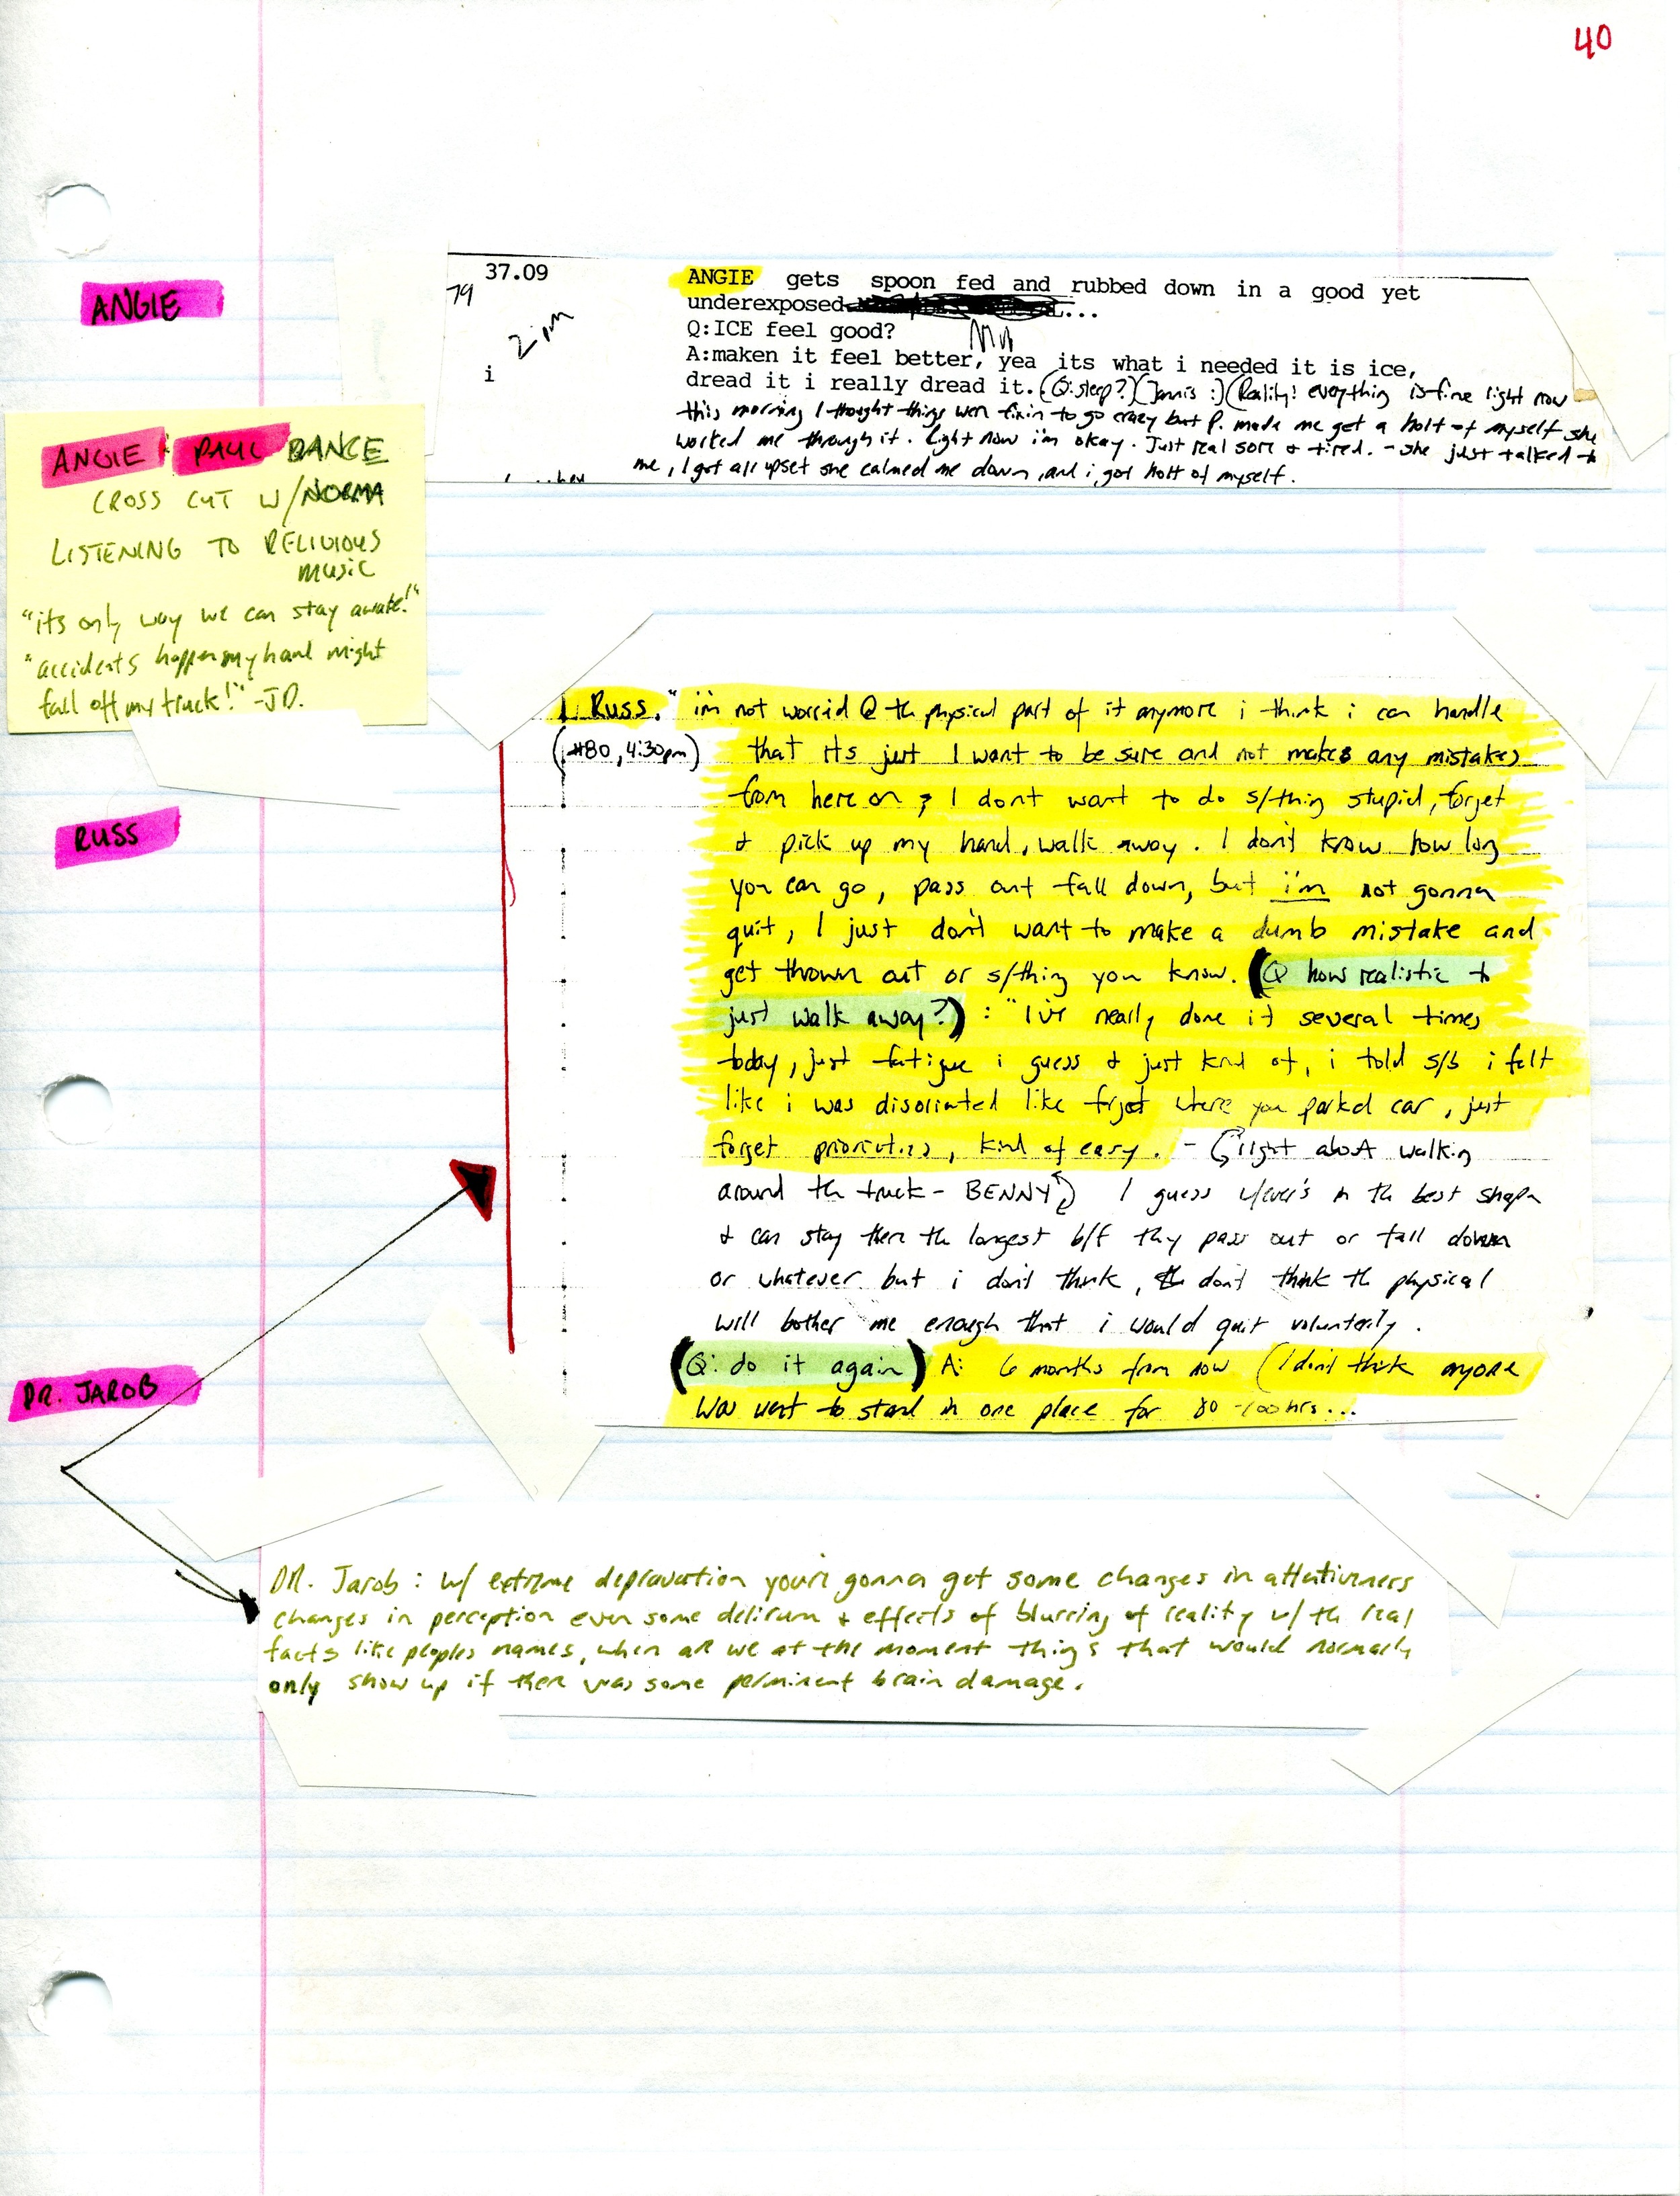 40
ANGIE
37.09
79
2pm
i
ANGIE gets spoon fed and rubbed down in a good yet
underexposed ...
Q:ICE feel good?
A:maken it feel better, yea its what i needed it is ice,
dread it i really dread it. (Q: sleep?) (Janis :) (Reality! everything is fine right now
this morning I thought things were fixin to go crazy but P. made me get a holt of myself she
worked me through it. Right now i'm okay. Just real sore + tired. - she just talked to
me, I got all upset she calmed me down, and i got holt of myself.
ANGIE : PAUL DANCE
CROSS CUT W/NORMA
LISTENING TO RELIGIOUS
MUSIC
"its only way we can stay awake!"
"accidents happen my hand might
fall off my truck!" -JD.
RUSS
Russ. "i'm not worried @ th physical part of it anymore i think i can handle
(#80, 4:30pm) that its just I want to be sure and not makes any mistakes
from here on ; I dont want to do s/thing stupid, forget
+ pick up my hand, walk away. I don't know how long
you can go, pass out fall down, but i'm not gonna
quit, I just don't want to make a dumb mistake and
get thrown out or s/thing you know. (Q how realistic to
just walk away?) : "I've nearly done it several times
today, just fatigue i guess + just kind of, i told s/b i felt
like i was disoriented like forget where you parked car, just
forget priorities, kind of easy. - right about walking
around th truck - BENNY I guess w/ever's in th best shape
+ can stay there th longest b/f thy pass out or fall down
or whatever but i don't think, don't think th physical
will bother me enough that i would quit volunterily.
(Q: do it again) A: 6 months from now (I don't think anyone
was ment to stand in one place for 80 -100 hrs...
DR. JAROB
DR. Jarob : w/ extreme depravation youri gonna get some changes in attentivness
changes in perception even some delirum + effects of blurring of reality w/ th real
facts like peoples names, when are we at the moment things that would normally
only show up if ther was some perminent brain damage.